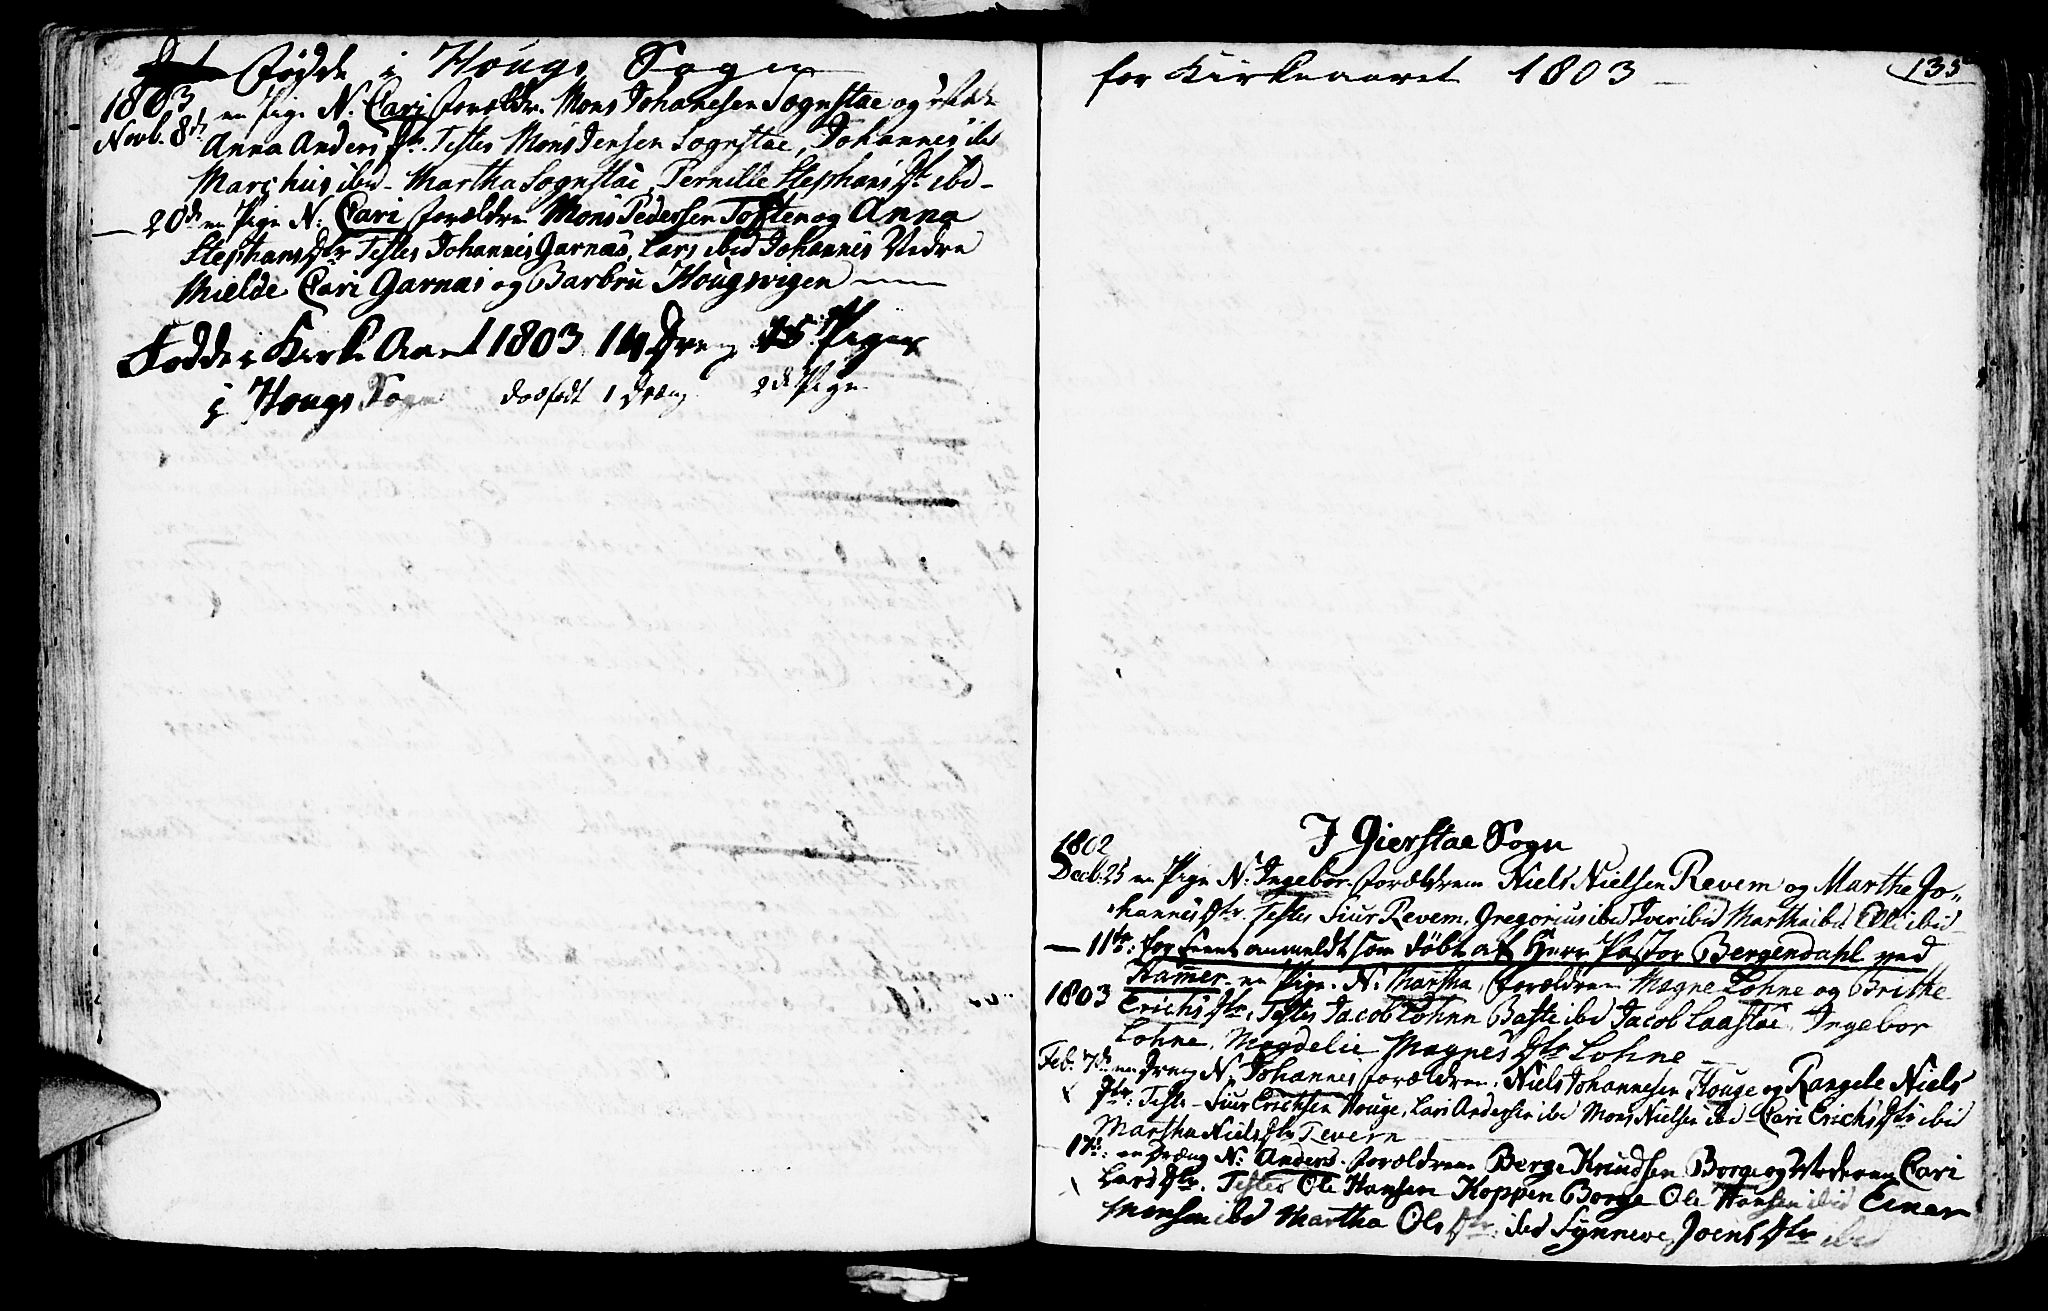 Fødde i Hougs Sogn
1803
Novb. 8de en Pige N: Cari Forældr. Mons Johannesen Sognstae og
Anna Anders Dtr. Testes Mons Jensen Sognstae, Johannes ibd
Marchus ibid - Martha Sognstae, Pernille Stephans Dtr ibd -
— 20de en Pige N: Cari Forældre Mons Pedersen Toften og Anna
Stephans Dtr Testes Johannes Garnaas, Lars ibid Johannes Nedre
Mielde Cari Garnas og Barbru Hougsvigen —
Fødde i Kirke Aaret 1803 14 Dreng 15 Piger
i Hougs Sogn dødfødt 1 Dreng 2de Pige
for Kirkeaaret 1803 —
135
I Gierstae Sogn
1802
Decb. 25 en Pige N: Ingebor. Forældrene Niels Nielsen Revem og Marthe Jo-
hannes Dtr. Testes Siur Revem, Gregorius ibid Iver ibid Martha ibid Elli ibid
— 11te: for Eenet anmeldt som døbt af Herr Pastor Bergendahl ved
Hamer - en Pige. N: Martha, Forældrene Magne Lohne og Brithe
1803 Erichs Dtr, Testes Jacob Lohne Baste ibd Jacob Laastae Ingebor
Lohne, Magdelie Magnes Dtr Lohne —
Feb. 7de en Dreng N. Johannes forældrene, Niels Johannesen Houge og Rangele Niels
Dtr: Teste - Siur Erichsen Houge, Lars Andersen ibd Mons Nielsen ibd - Cari Erichs Dtr ibid
Martha Niels Dtr Revem
17de: en Dreng N: Anders. forældrene Berge Knudsen Borge og Moderen Cari
Lars Dtr. Testes Ole Hansen Koppen Borge Ole Hansen ibid Einar
Monsen ibd Martha Ols Dtr. ibd Synneve Joens Dtr ibd